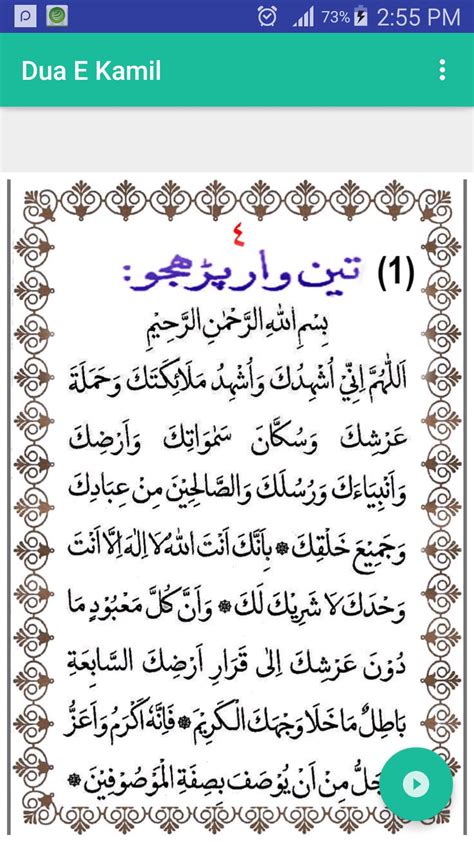 73% 2:55 PM
Dua E Kamil
٤
(1) تين وار پڑهجو:
بِسْمِ اللهِ الرَّحْمٰنِ الرَّحِيْمِ
اَللّٰهُمَّ اِنِّيْ اُشْهِدُكَ وَاُشْهِدُ مَلَائِكَتَكَ وَحَمَلَةَ
عَرْشِكَ وَسُكَّانَ سَمٰوَاتِكَ وَاَرْضِكَ
وَاَنْبِيَاءَكَ وَرُسُلَكَ وَالصَّالِحِيْنَ مِنْ عِبَادِكَ
وَجَمِيْعَ خَلْقِكَ * بِاَنَّكَ اَنْتَ اللهُ لَا اِلٰهَ اِلَّا اَنْتَ
وَحْدَكَ لَا شَرِيْكَ لَكَ * وَاَنَّ كُلَّ مَعْبُوْدٍ مَا
دُوْنَ عَرْشِكَ اِلٰى قَرَارِ اَرْضِكَ السَّابِعَةِ
بَاطِلٌ مَا خَلَا وَجْهَكَ الْكَرِيْمَ * فَاِنَّهٗ اَكْرَمُ وَاَعَزُّ
مِنْ اَنْ يُوْصَفَ بِصِفَةِ الْمَوْصُوْفِيْنَ *